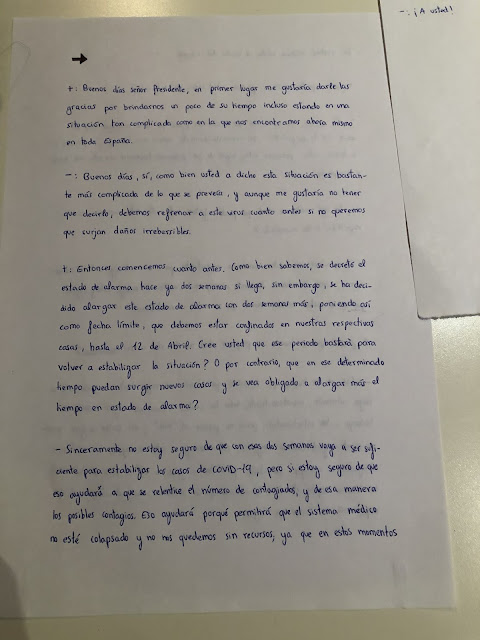 -: ¡A usted!
→
+: Buenos días señor Presidente, en primer lugar me gustaría darte las
gracias por brindarnos un poco de su tiempo incluso estando en una
situación tan complicada como en la que nos encontramos ahora mismo
en toda España.
-: Buenos días, sí, como bien usted a dicho esta situación es bastan-
te más complicada de lo que se preveía, y aunque me gustaría no tener
que decirlo, debemos refrenar a este virus cuanto antes si no queremos
que surjan daños irreversibles.
+: Entonces comencemos cuanto antes. Como bien sabemos, se decretó el
estado de alarma hace ya dos semanas si llega, sin embargo, se ha deci-
dido alargar este estado de alarma con dos semanas más, poniendo así
como fecha límite, que debemos estar confinados en nuestras respectivas
casas, hasta el 12 de Abril. Cree usted que ese periodo bastará para
volver a estabilizar la situación? O por contrario, que en ese determinado
tiempo puedan surgir nuevos casos y se vea obligado a alargar más el
tiempo en estado de alarma?
- Sinceramente no estoy seguro de que con esas dos semanas vaya a ser sufi-
ciente para estabilizar los casos de COVID-19, pero si estoy seguro de que
eso ayudará a que se relentice el número de contagiados, y de esa manera
los posibles contagios. Eso ayudará porqué permitirá que el sistema médico
no esté colapsado y no nos quedemos sin recursos, ya que en estos momentos